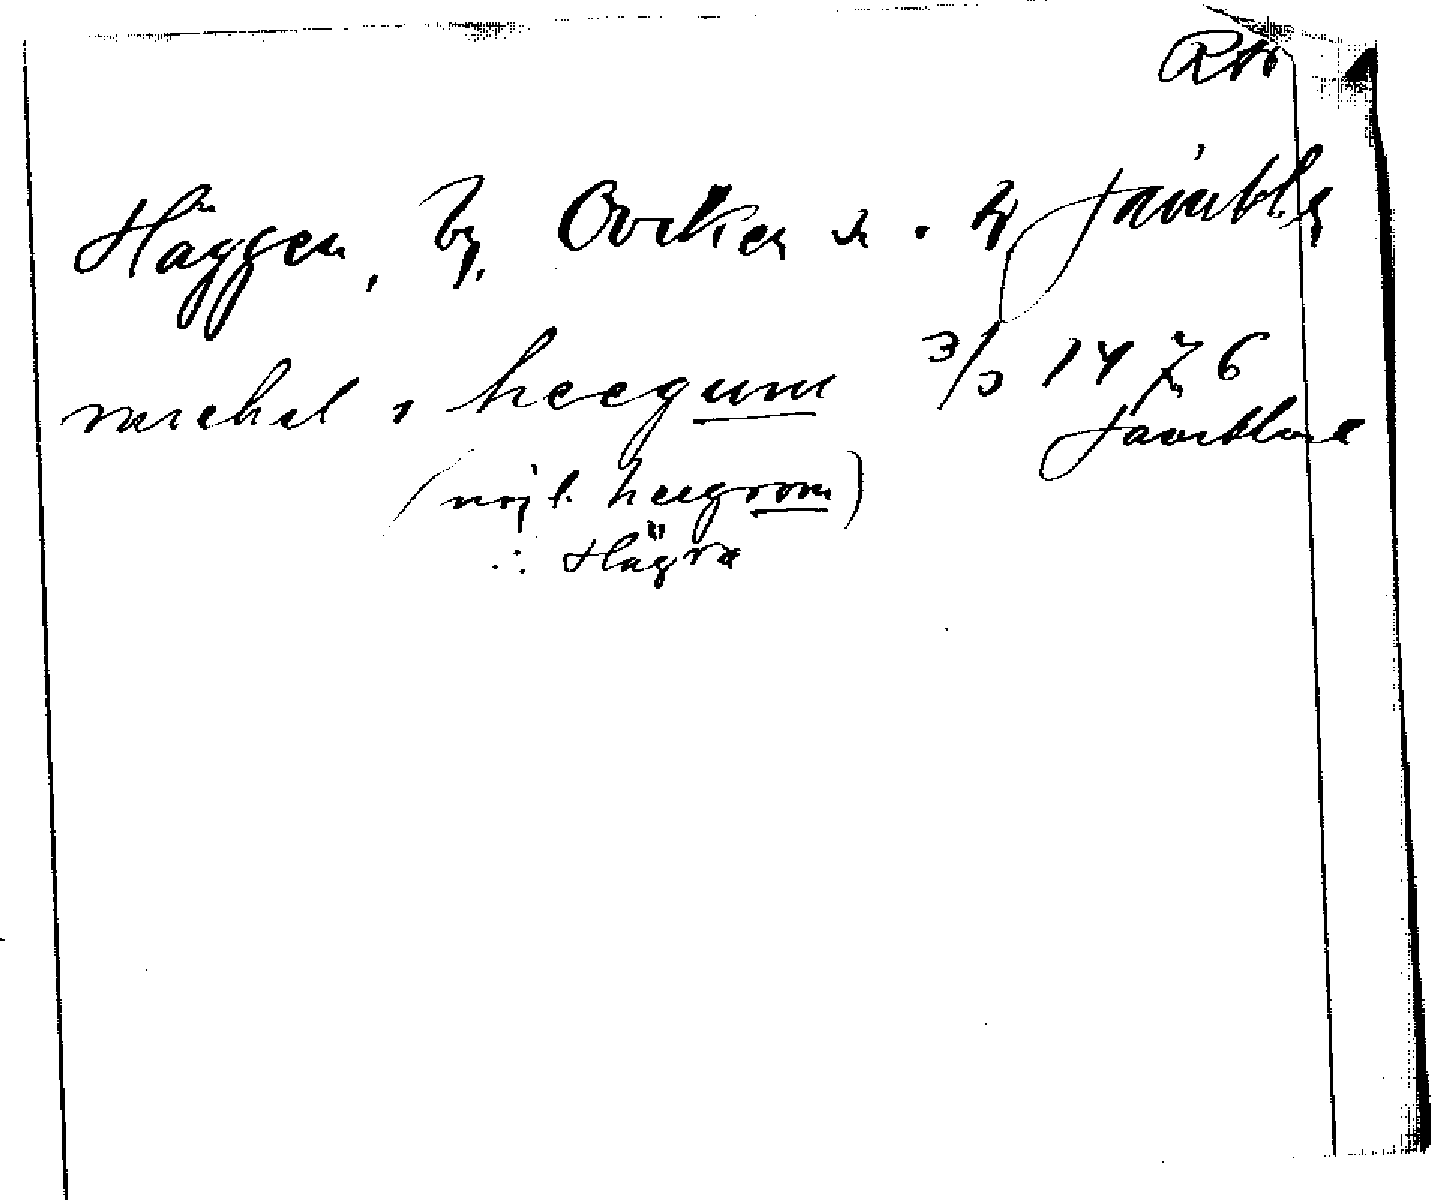 Häggen, by, Oviken sn. Jämtl.
michel i heegum 3/3 1476
Jämtland
(möjl. heegrom)
∴ Hägra